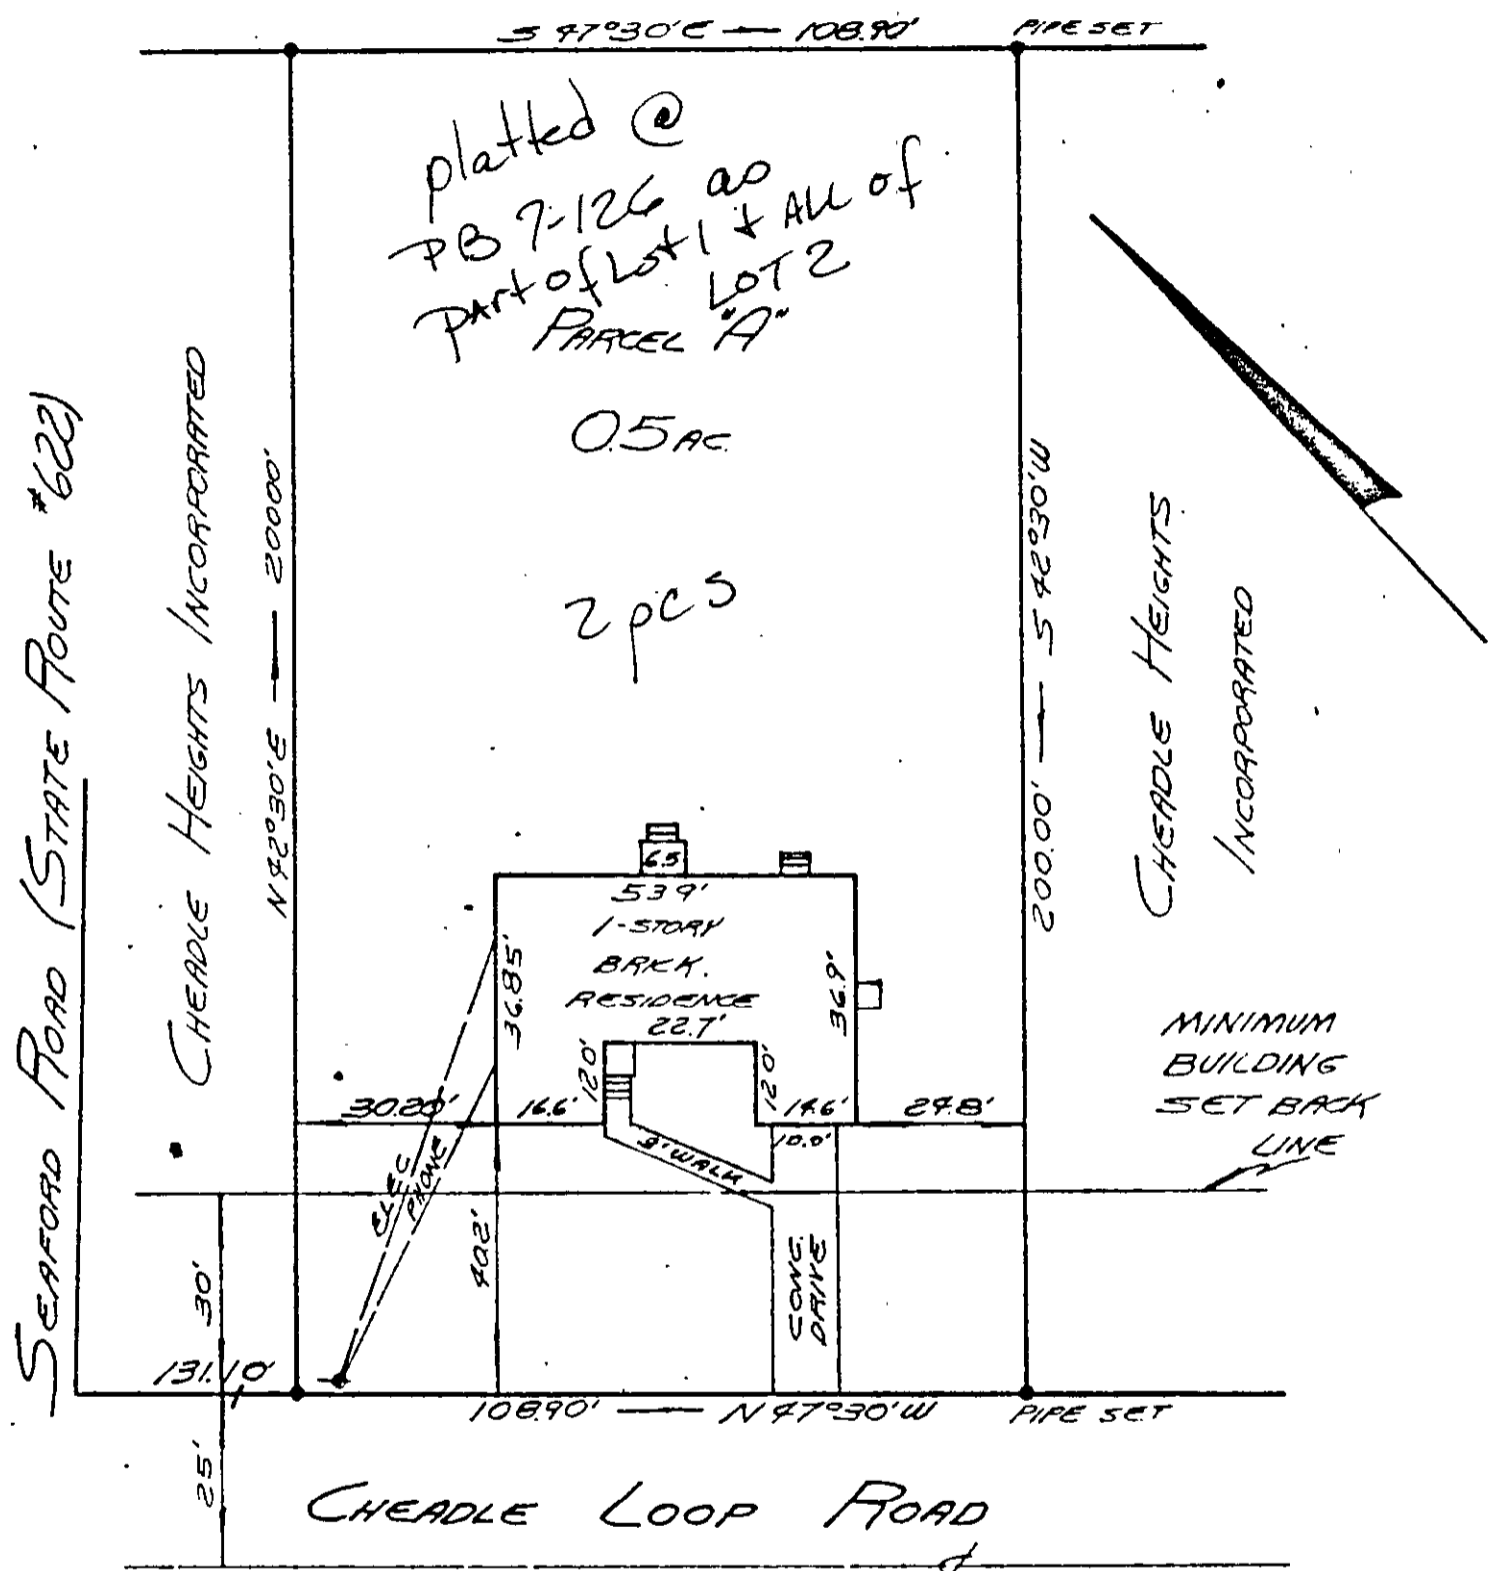 S 47°30'E — 108.90' PIPE SET
platted @
PB 7-126 as
part of Lot 1 + ALL of
LOT 2
PARCEL "A"
0.5 AC.
2 pcs
SEAFORD ROAD (STATE ROUTE #622)
CHEADLE HEIGHTS INCORPORATED
N 42°30'E — 200.00'
200.00' — S 42°30'W
CHEADLE HEIGHTS
INCORPORATED
6.5
53.9'
1-STORY
BRICK.
RESIDENCE
22.7'
36.85'
36.9'
12.0'
12.0'
30.20'
16.6'
14.6'
24.8'
10.0'
3' WALK
ELEC
PHONE
40.2'
CONC.
DRIVE
MINIMUM
BUILDING
SET BACK
LINE
30'
131.10'
25'
108.90' — N 47°30'W PIPE SET
CHEADLE LOOP ROAD